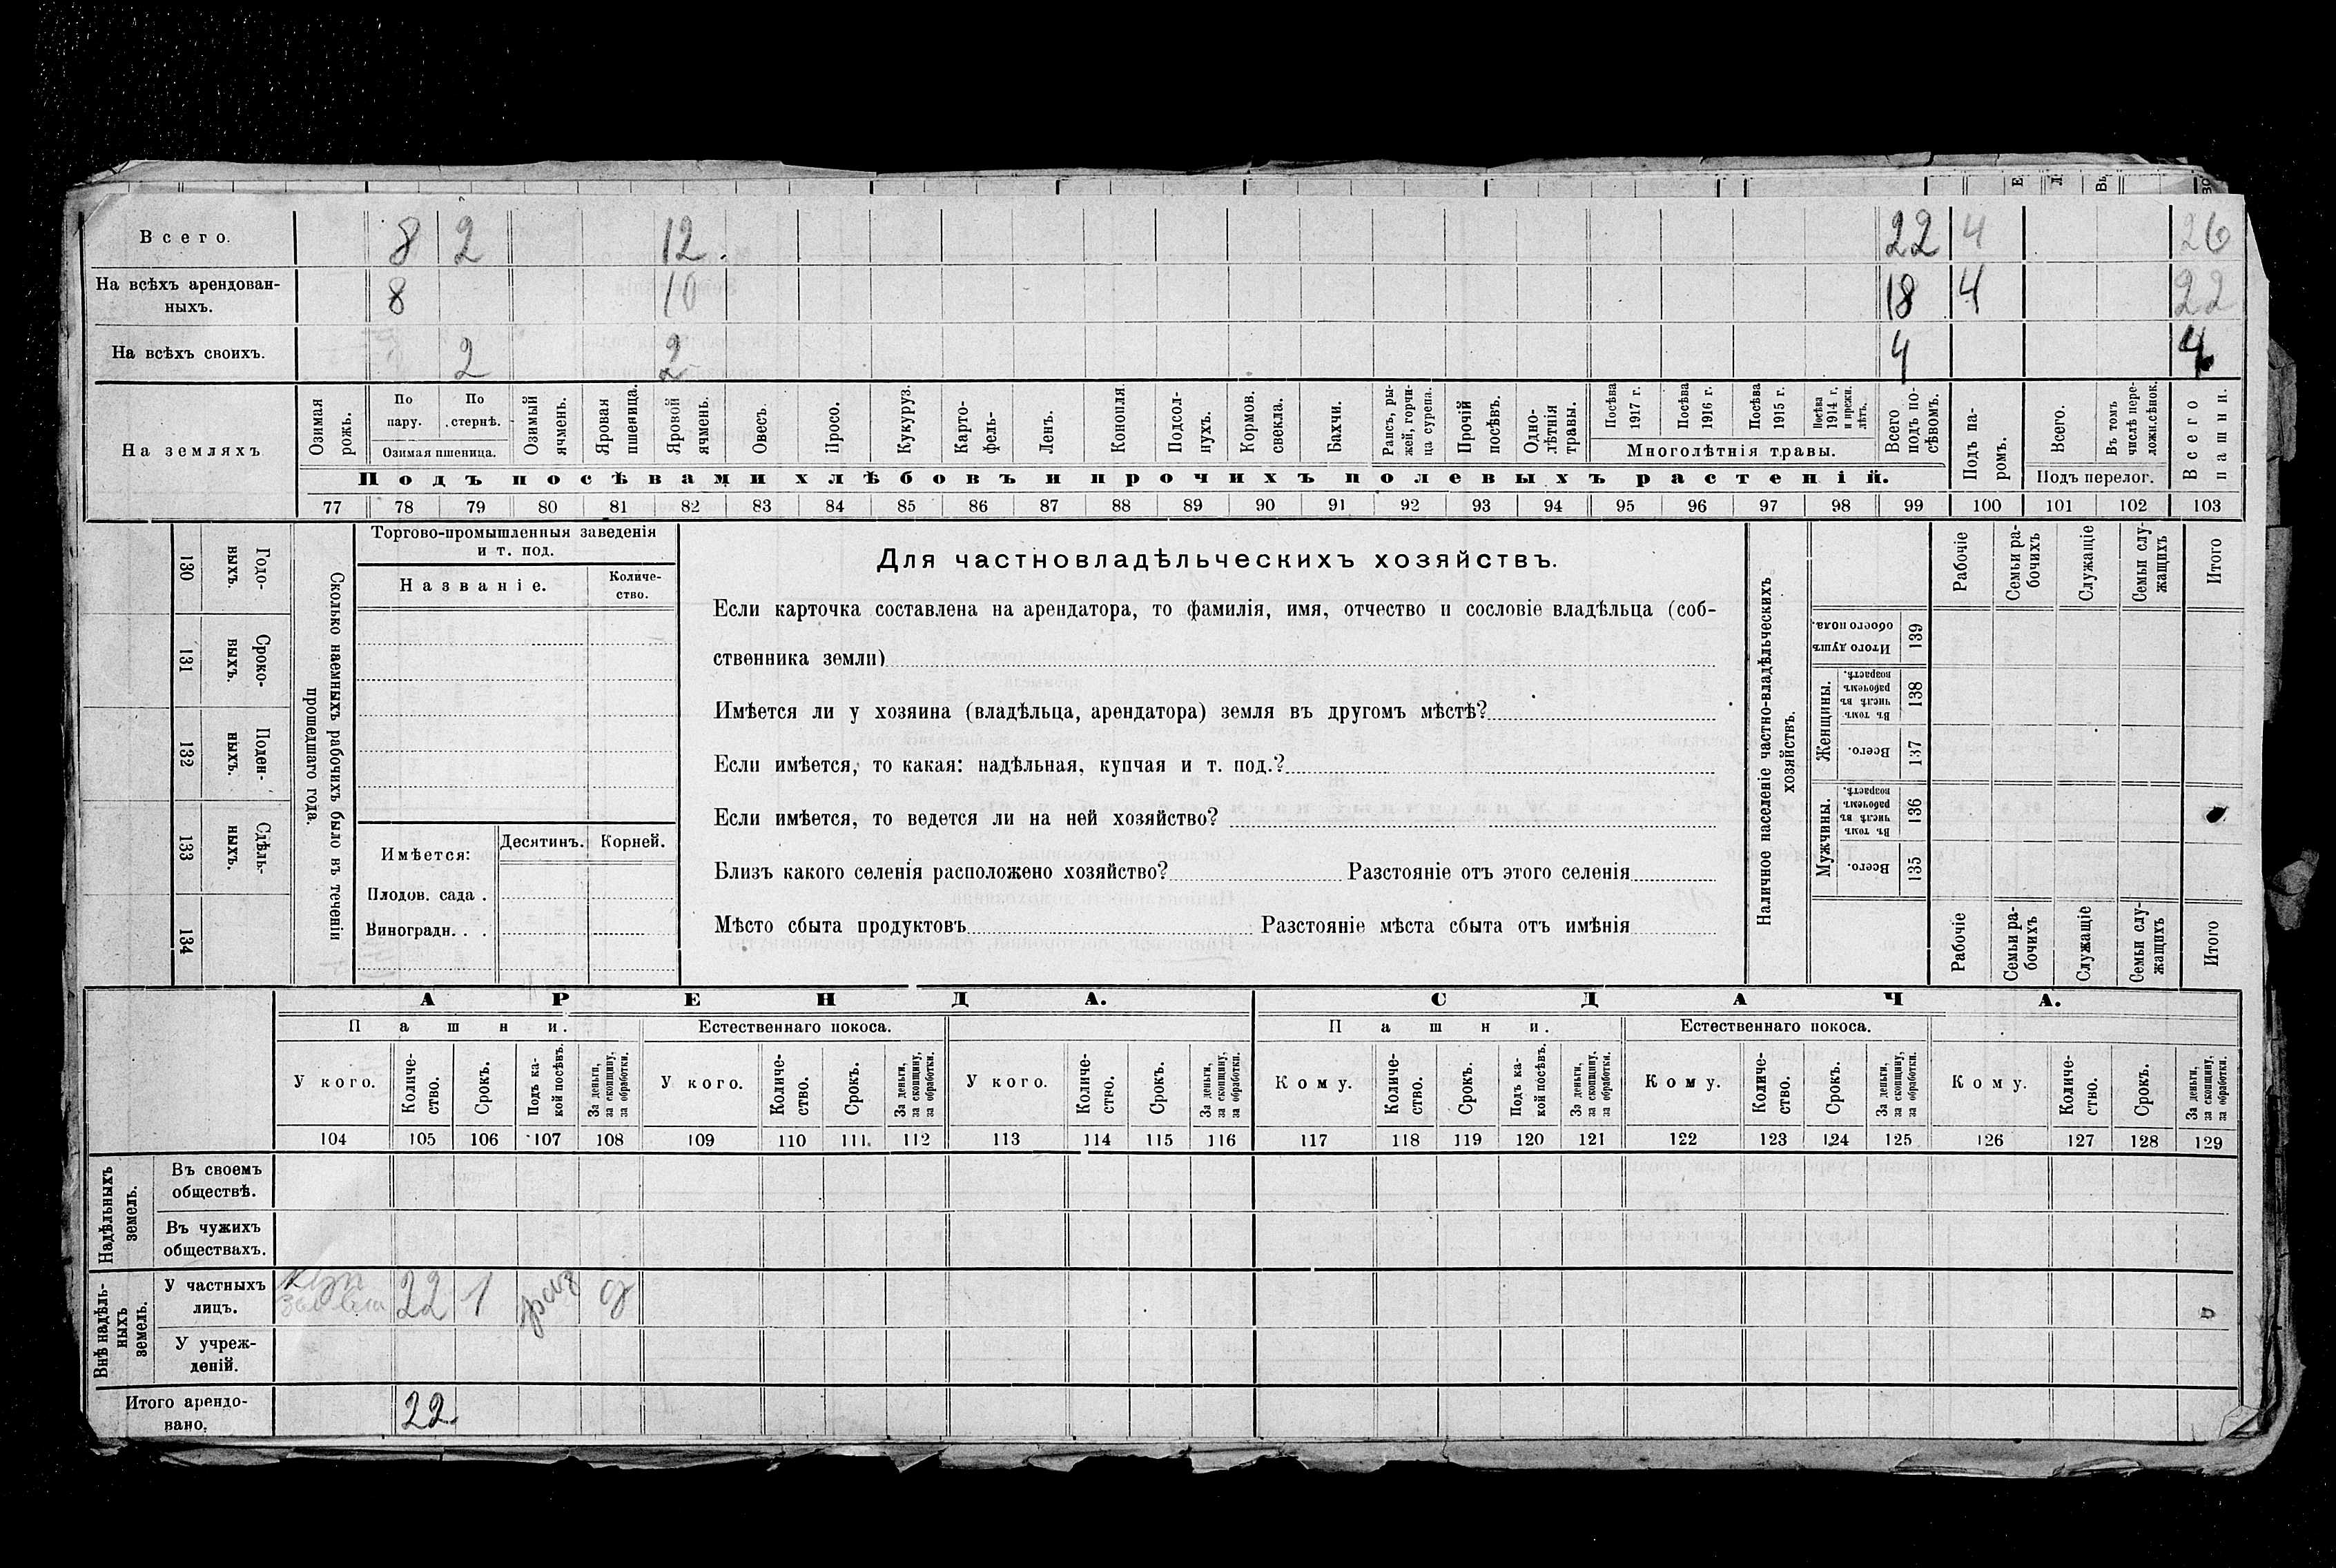 Всего. 8 2 12. 22 4 26
На всѣхъ арендован-
ныхъ. 8 10 18 4 22
На всѣхъ своихъ. 2 2 4 4
На земляхъ
Озимая рожь.
По пару.
По стернѣ.
Озимая пшеница.
Озимый ячмень.
Яровая пшеница.
Яровой ячмень.
Овесъ.
Просо.
Кукуруз.
Карто-
фель-
Ленъ.
Конопля.
Подсол-
нухъ.
Кормов. свекла.
Бахчи.
Рапсъ, ры-
жей, горчи-
ца сурепа.
Прочій посѣвъ.
Одно-
лѣтнія травы.
Посѣва 1917 г.
Посѣва 1916 г.
Посѣва 1915 г.
Посѣва 1914 г. и прежн. лѣтъ.
Многолѣтнія травы.
Всего подъ по-
сѣвомъ.
Подъ па-
ромъ.
Всего.
Въ томъ числѣ пере-
ложн.сѣнок.
Подъ перелог.
Всего пашни.
Подъ посѣвами хлѣбовъ и прочихъ полевыхъ растеній.
77 78 79 80 81 82 83 84 85 86 87 88 89 90 91 92 93 94 95 96 97 98 99 100 101 102 103
130 Годо-
выхъ.
131 Сроко-
ныхъ.
132 Поден-
ныхъ.
133 Сдѣль-
ныхъ.
134
Сколько наемныхъ рабочихъ было въ теченіи
прошедшаго года.
Торгово-промышленныя заведенія
и т. под.
Названіе.
Количе-
ство.
Имѣется:
Десятинъ. Корней.
Плодов. сада .
Виноградн. . .
Для частновладѣльческихъ хозяйствъ.
Если карточка составлена на арендатора, то фамилія, имя, отчество и сословіе владѣльца (соб-
ственника земли)
Имѣется ли у хозяина (владѣльца, арендатора) земля въ другомъ мѣстѣ?
Если имѣется, то какая: надѣльная, купчая и т. под.?
Если имѣется, то ведется ли на ней хозяйство?
Близъ какого селенія расположено хозяйство? Разстояніе отъ этого селенія
Мѣсто сбыта продуктовъ Разстояніе мѣста сбыта отъ имѣнія
Наличное населеніе частно-владѣльческихъ
хозяйствъ.
Рабочіе
Семьи ра-
бочихъ
Служащіе
Семьи слу-
жащихъ
Итого
Итого душъ обоего пола. 139
Женщины.
Въ томъ числѣ въ рабочемъ возрастѣ. 138
Всего. 137
Мужчины.
Въ томъ числѣ въ рабочемъ возрастѣ. 136
Всего. 135
Рабочіе
Семьи ра-
бочихъ
Служащіе
Семьи слу-
жащихъ
Итого
АРЕНДА. СДАЧА.
Пашни. Естественнаго покоса. Пашни. Естественнаго покоса.
У кого.
Количе-
ство.
Срокъ.
Подъ ка-
кой посѣвъ.
За деньги,
за скопщину,
за обработки.
У кого.
Количе-
ство.
Срокъ.
За деньги,
за скопщину,
за обработки.
У кого.
Количе-
ство.
Срокъ.
За деньги,
за скопщину,
за обработки.
Кому.
Количе-
ство.
Срокъ.
Подъ ка-
кой посѣвъ.
За деньги,
за скопщину,
за обработки.
Кому.
Количе-
ство.
Срокъ.
За деньги,
за скопщину,
за обработки.
Кому.
Количе-
ство.
Срокъ.
За деньги,
за скопщину,
за обработки.
104 105 106 107 108 109 110 111 112 113 114 115 116 117 118 119 120 121 122 123 124 125 126 127 128 129
Надѣльныхъ
земель.
Въ своемъ
обществѣ.
Въ чужихъ
обществахъ.
Внѣ надѣль-
ныхъ
земель.
У частныхъ
лицъ. 22 1 раз д
У учреж-
деній.
Итого арендо-
вано. 22